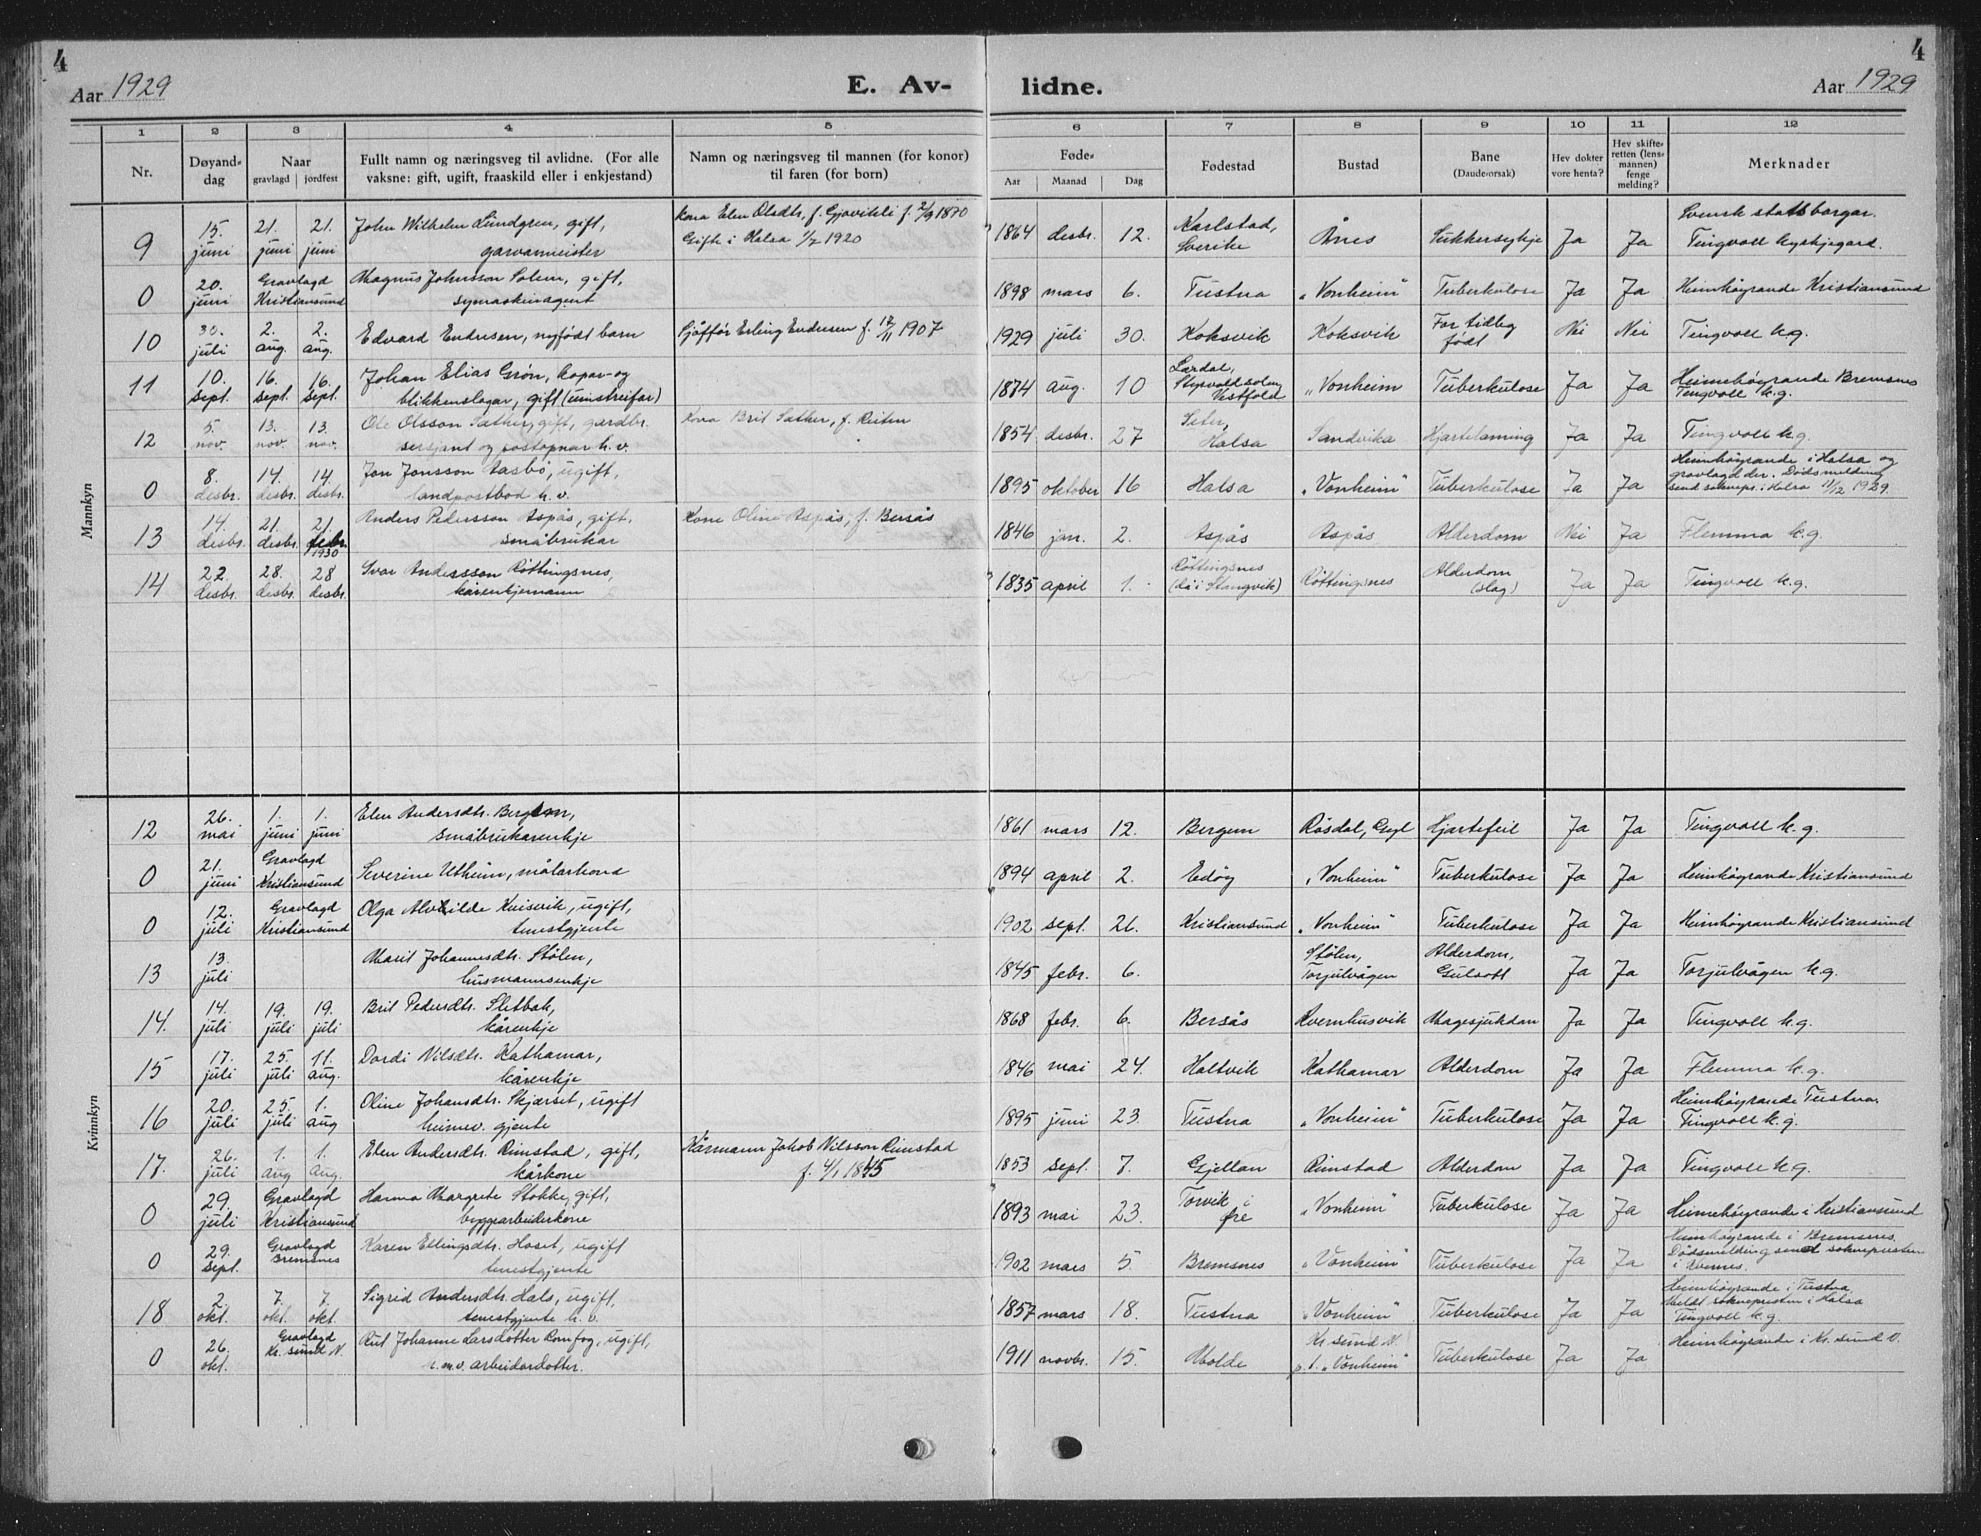 4
4
Aar 1929
E. Av-
lidne.
Aar 1929
1 2 3 4 5 6 7 8 9 10 11 12
Nr.
Døyand-
dag
Naar
gravlagd jordfest
Fullt namn og næringsveg til avlidne. (For alle
vaksne: gift, ugift, fraaskild eller i enkjestand)
Namn og næringsveg til mannen (for konor)
til faren (for born)
Føde-
Aar Maanad Dag
Fødestad
Bustad
Bane
(Daude-orsak)
Hev dokter
vore henta?
Hev skifte-
retten (lens-
mannen)
fenge
melding?
Merknader
Mannkyn
9 15. juni 21. juni 21. juni
John Wilhelm Lundgren, gift,
garvarmeister
Kona Elen Olsdtr, f. 2/9 1870
Gift i Halsa 1/7 1920
1864 desbr. 12. Karlstad,
Sverike
Ånes Sukkersykje Ja Ja
Svensk statsborgar.
Tingvoll kyrkjegard.
0 20. juni Gravlagd
Kristiansund
Magnus Johnsson Solem, gift,
symaskinagent
1898 mars 6. Tustna „Vonheim“ Tuberkulose Ja Ja Heimhøyrande Kristiansund
10 30. juli 2. aug. 2. aug.
Edvard Endresen, nyfødt barn
Sjåffør Erling Endresen f. 12/11 1907
1929 juli 30. Koksvik Koksvik For tidleg
født
Nei Nei Tingvoll k.g.
11 10. sept. 16. sept. 16. sept.
Johan Elias Grøn, kopar- og
blikkenslagar, gift (umstreifar)
1874 aug. 10 Lardal,
Vestfold
„Vonheim Tuberkulose Ja Ja
Heimehøyrande Bremsnes
Tingvoll k.g.
12 5. nov. 13. nov. 13. nov.
Ole Olsson Sæther, gift, gardbr.
sersjant og postopnar h.v.
Kona Brit Sæther, f. Reiten
1854 desbr. 27 Seter,
Halsa
Sandvika Hjartelaming Ja Ja Tingvoll k.g.
0 8. desbr. 14. desbr. 14. desbr.
Jon Jonsson Aasbø, ugift,
landpostbod h.v.
1895 oktober 16 Halsa „Vonheim“ Tuberkulose Ja Ja
Heimhøyrande i Halsa og
gravlagd der. Dødsmelding
send sokneprs. i Halsa 11/12 1929.
13 14. desbr. 21. desbr. 21. febr. 1930
Anders Pedersson Aspås, gift,
småbrukar
Kone Oline Aspås, f. Bersås
1846 jan. 2. Aspås Aspås Alderdom Nei Ja Flemma k.g.
14 22. desbr. 28. desbr. 28 desbr.
Ivar Andersson Røttingsnes,
kårenkjemann
1835 april 1. Røttingsnes
(då i Stangvik)
Røttingsnes Alderdom
(slag)
Ja Ja Tingvoll k.g.
Kvinnkyn
12 26. mai 1. juni 1. juni
Elen Andersdtr. Bergem,
småbrukarenkje
1861 mars 12. Bergem Røsdal, Gyl Hjartefeil Ja Ja Tingvoll k.g.
0 21. juni Gravlagd
Kristiansund
Severine Utheim, målarkona
1894 april 2. Edøy „Vonheim“ Tuberkulose Ja Ja Heimhøyrande Kristiansund
0 12. juli Gravlagd
Kristiansund
Olga Alvhilde Kvisvik, ugift,
tenestgjente
1902 sept. 26. Kristiansund „Vonheim“ Tuberkulose Ja Ja Heimhøyrande Kristiansund
13 13. juli
Marit Johannesdtr. Stølen,
husmannsenkje
1845 febr. 6. Stølen,
Torjulvågen
Alderdom,
Gulsott
Ja Ja Torjulvågen k.g.
14. 14. juli 19. juli 19. juli
Brit Pedersdtr. Sletbak,
kårenkje
1868 febr. 6. Bersås Kvernhusvik Magesjukdom Ja Ja Tingvoll k.g.
15 17. juli 25. juli 11. aug.
Dordi Nilsdtr. Kathamar,
kårenkje
1846 mai 24. Holtvik Kathamar Alderdom Ja Ja Flemma k.g.
16 20. juli 25. juli 1. aug
Oline Johansdtr. Skjærset, ugift
heimev. gjente
1895 juni 23. Tustna „Vonheim“ Tuberkulose Ja Ja
Heimhøyrande Tustna.
Tingvoll k.g.
17. 26. juli 1. aug 1. aug.
Elen Andersdtr. Rimstad, gift,
kårkone
Kårmann Jakob Nilsson Rimstad
f. 4/1 1845
1853 sept. 7. Gjellan Rimstad Alderdom Ja Ja Tingvoll k.g.
0 29. juli Gravlagd
Kristiansund
Hanna Margrete Stokke, gift,
byggarbeiderkone
1893 mai 23. Torvik i
Øre
„Vonheim“ Tuberkulose Ja Ja Heimehøyrande i Kristiansund
0 29. sept. Gravlagd
Bremsnes
Karen Ellingsdtr. Hoset, ugift
tenestgjente
1902 mars 5. Bremsnes „Vonheim“ Tuberkulose Ja Ja
Heimhøyrande i Bremsnes.
Dødsmelding send soknepresten
i Kvernes.
18 2. okt. 7. okt. 7. okt.
Sigrid Andersdtr. Hals, ugift,
tenestgjente h.v.
1857 mars 18. Tustna „Vonheim“ Tuberkulose Ja Ja
Heimhøyrande i Tustna
Meldt soknepresten i Halsa
Tingvoll k.g.
0 26. okt. Gravlagd
Kr. sund N.
Rut Johanne Larsdotter Romfog, ugift,
arbeidardotter.
1911 novbr. 15. Molde Kr. sund N.
p.t. „Vonheim“
Tuberkulose Ja Ja Heimhøyrande i Kr. sund N.